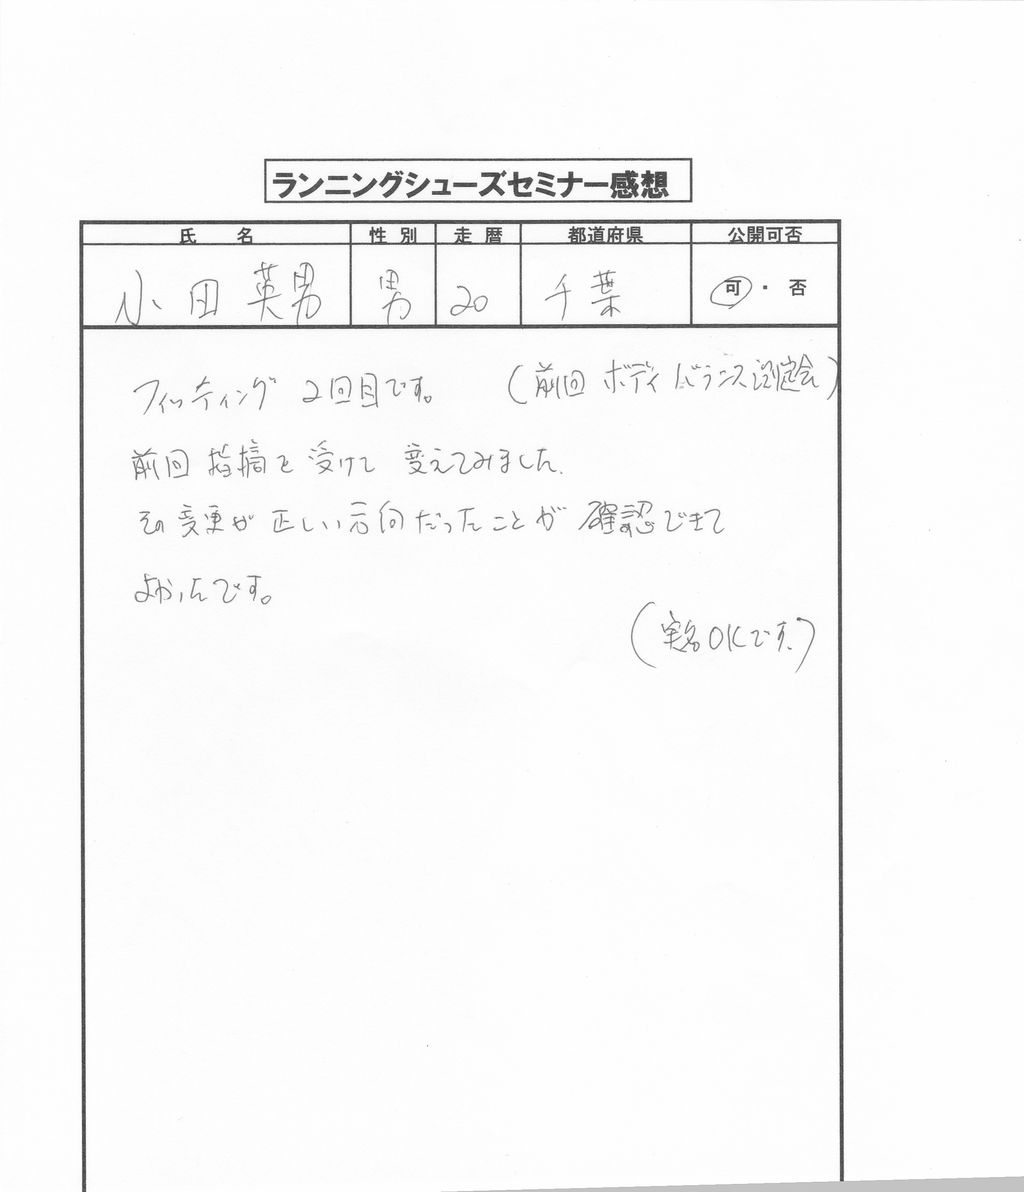 ランニングシューズセミナー感想
氏 名 性 別 走 暦 都道府県 公開可否
小田 英男 男 20 千葉 可・否
フィッティング 2回目です。 (前回 ボディバランス測定会)
前回 指摘を受けて 変えてみました。
その変更が 正しい方向だったことが 確認できて
よかったです。
(実名OKです。)